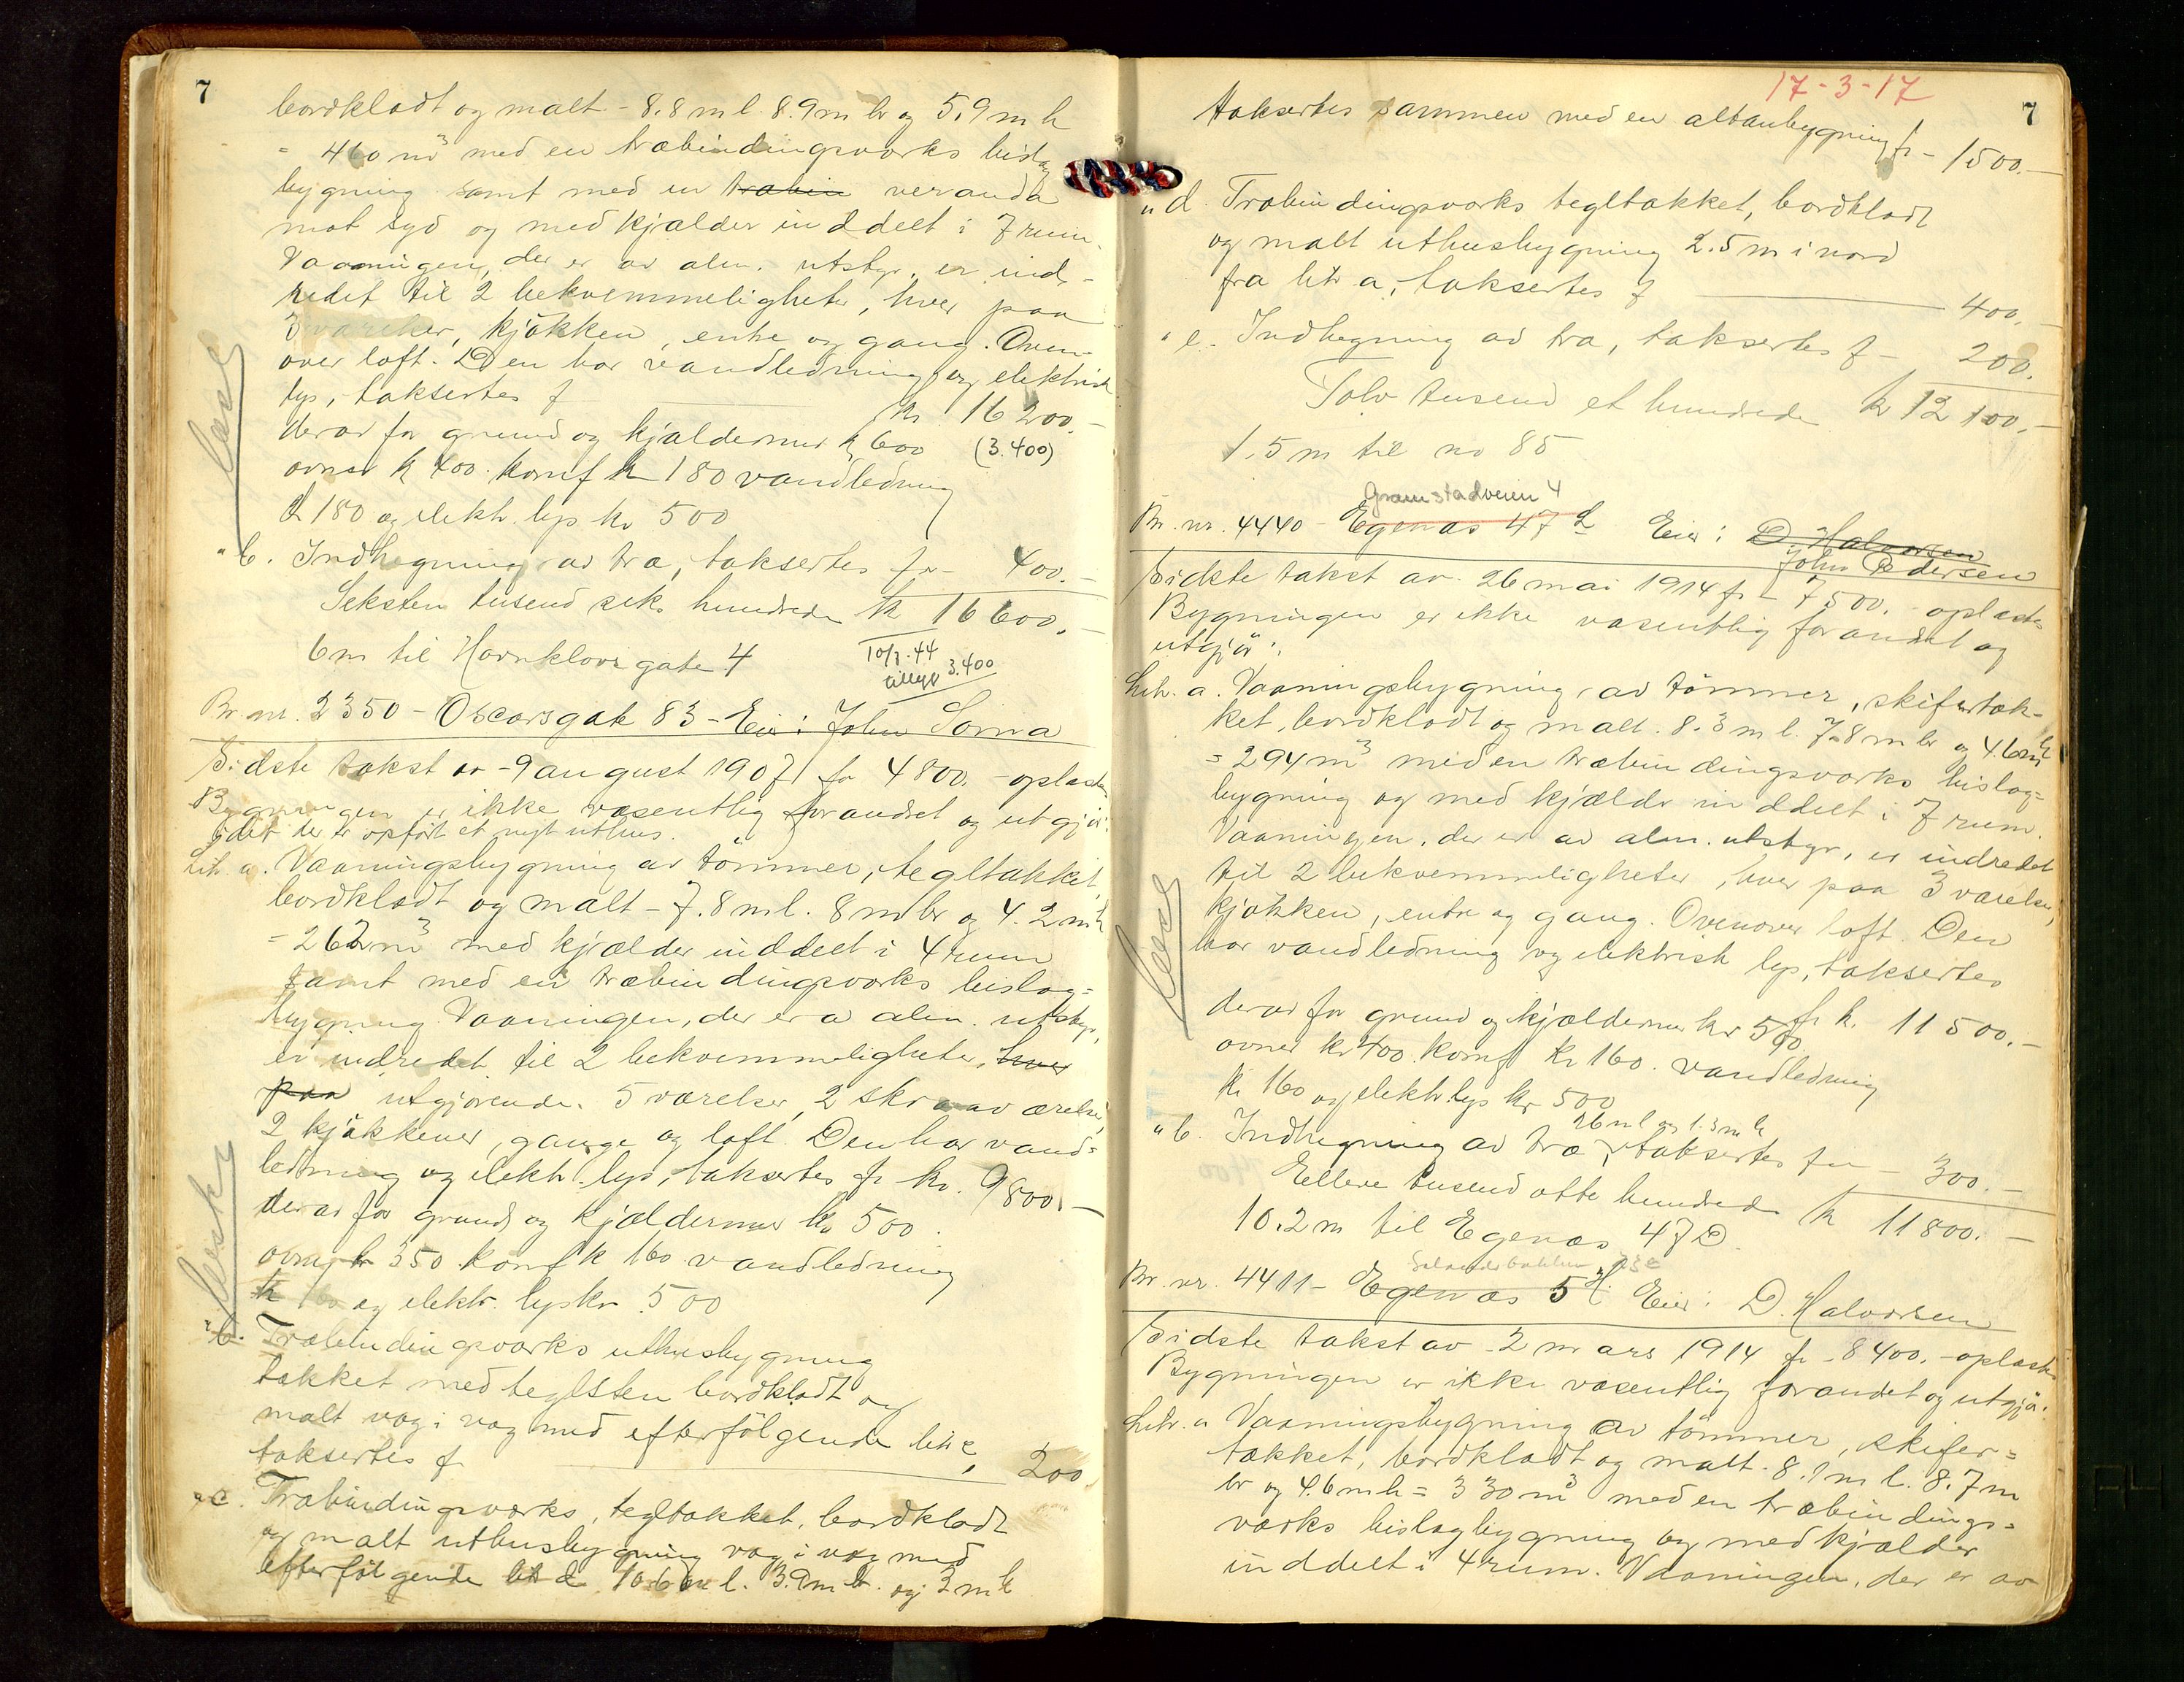 7
bordklædt og malt - 8.8 m l. 8.9 m br og 5.9 m h
= 460 m³ med en træbindingsværks bislag
bygning samt med en træbin veranda
mot syd og med kjælder inddelt i 7 rum.
Vaaningen, der er av alm. utstyr, er ind-
redet til 2 bekvemmeligheter, hver paa
3 værelser, kjøkken, entre og gang. Oven-
over loft. Den har vandledning og elektrisk
lys, taksertes f kr 16 200.-
derav for grund og kjældermur kr 600 (3.400)
ovner kr 400. komf kr 180 vandledning
kr 180 og elektr. lys kr 500
" b. Indhegning av træ, taksertes for - 400.-
Seksten tusend seks hundrede kr 16 600.-
6 m til Havnkloves gate 4
10/3.44
tillegg 3.400
Br. nr. 2350 - Oscarsgate 83 - Eier: John Søma
Sidste takst av - 9 august 1907 for 4800.- oplæstes
Bygningen er ikke væsentlig forandret og utgjør:
idet der er opført et nyt uthus.
Litr. a. Vaaningsbygning av tømmer, tegltækket,
bordklædt og malt - 7.8 m l. 8 m br og 4.2 m h
= 262 m³ med kjælder inddelt i 4 rum
samt med en træbindingsværks bislag=
bygning. Vaaningen, der er a alm. utstyr,
er indredet til 2 bekvemmeligheter, hver
paa utgjørende. 5 værelser, 2 skraaværelser,
2 kjøkkener, gange og loft. Den har vand=
ledning og elektr. lys, taksertes fr kr. 9800.-
derav for grund og kjældermur kr 500.
ovner kr 350 komf kr 160 vandledning
kr 160 og elektr. lys kr 500
" b. Træbindingsværks uthusbygning
tækket med teglsten bordklædt og
malt væg i væg med efterfølgende litr c,
taksertes f 200
" c. Træbindingsværks, tegltækket, bordklædt
og malt uthusbygning væg i væg med
efterfølgende litr d. 10.6 m l. 3.9 m br. og 3 m h
læst
læst
17-3-17
7
taksertes sammen med en altanbygning fr - 1500.-
" d. Træbindingsværks tegltækket, bordklædt
og malt uthusbygning 2.5 m i nord
fra litr a, taksertes f 400.-
" e. Indhegning av træ, taksertes f - 200.
Tolv tusend et hundrede kr 12 100.-
1.5 m til no 85
Gramstadveien 4
Br. nr. 4440 - Egenæs 47 L Eier: D. Halvorsen
John Pedersen
Sidste takst av 26 mai 1914 fr - 7500.- oplæstes
Bygningen er ikke væsentlig forandret og
utgjør:
Litr. a. Vaaningsbygning av tømmer, skifertæk-
ket, bordklædt og malt. 8.3 m l. 7.8 m br og 4.6 m h
= 294 m³ med en træbindingsværks bislag=
bygning og med kjælder inddelt i 7 rum.
Vaaningen, der er av alm. utstyr, er indredet
til 2 bekvemmeligheter, hver paa 3 værelser,
kjøkken, entre og gang. Ovenover loft. Den
har vandledning og elektrisk lys, taksertes
fr kr. 11 500.-
derav for grund og kjældermur kr 500
ovner kr 400. komf kr 160. vandledning
kr 160 og elektr lys kr 500
26 m l og 1.3 m h
" b. Indhegning av træ, taksertes for - 300.-
Elleve tusend otte hundrede kr 11 800.-
10.2 m til Egenæs 47 D
23 c
Br. nr. 4411 - Egenæs 5 H. Eier: D. Halvorsen
Sidste takst av - 2 mars 1914 fr - 8400.- oplæstes
Bygningen er ikke væsentlig forandret og utgjør:
Litr. a Vaaningsbygning av tømmer, skifer=
tækket, bordklædt og malt. 8.1 m l. 8.7 m
br og 4.6 m h = 330 m³ med en træbindings=
værks bislagbygning og med kjælder
inddelt i 4 rum. Vaaningen, der er av
læst